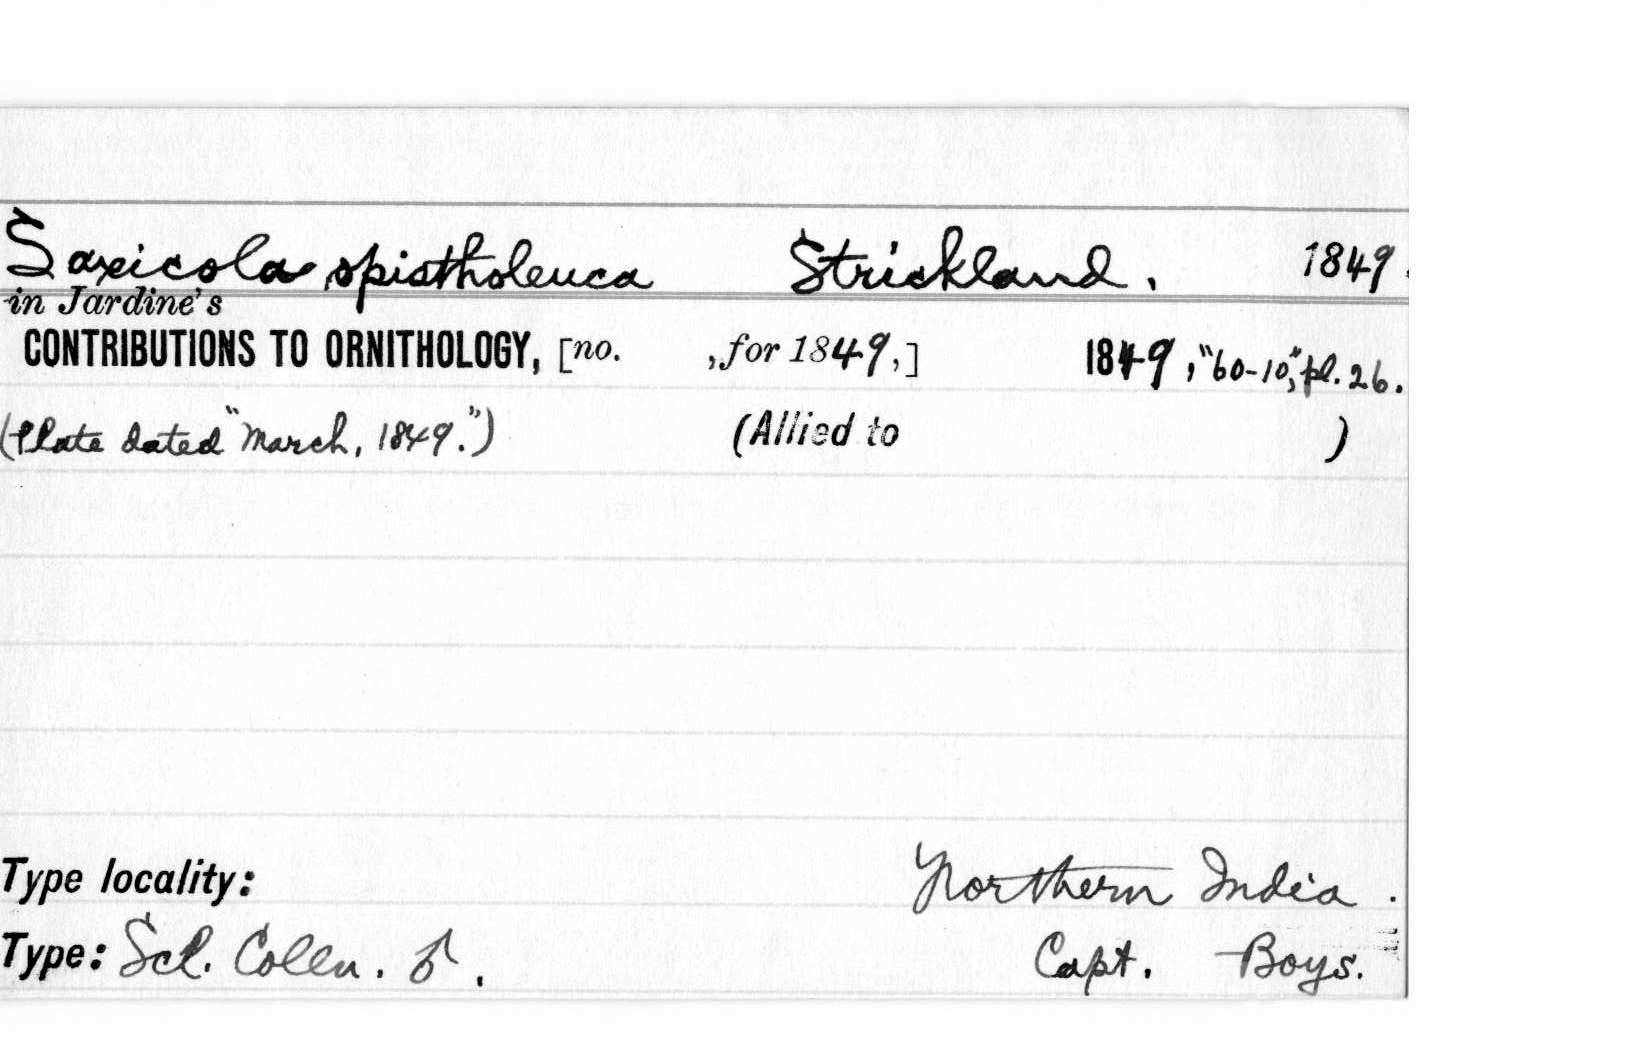 Saxicola opistholeuca Strickland. 1849.
in Jardine's
CONTRIBUTIONS TO ORNITHOLOGY, [no. , for 1849,] 1849, "60-10", pl. 26.
(Plate dated "March, 1849.") (Allied to )
Type locality: Northern India.
Type: Scl. Colln. ♂. Capt. Boys.